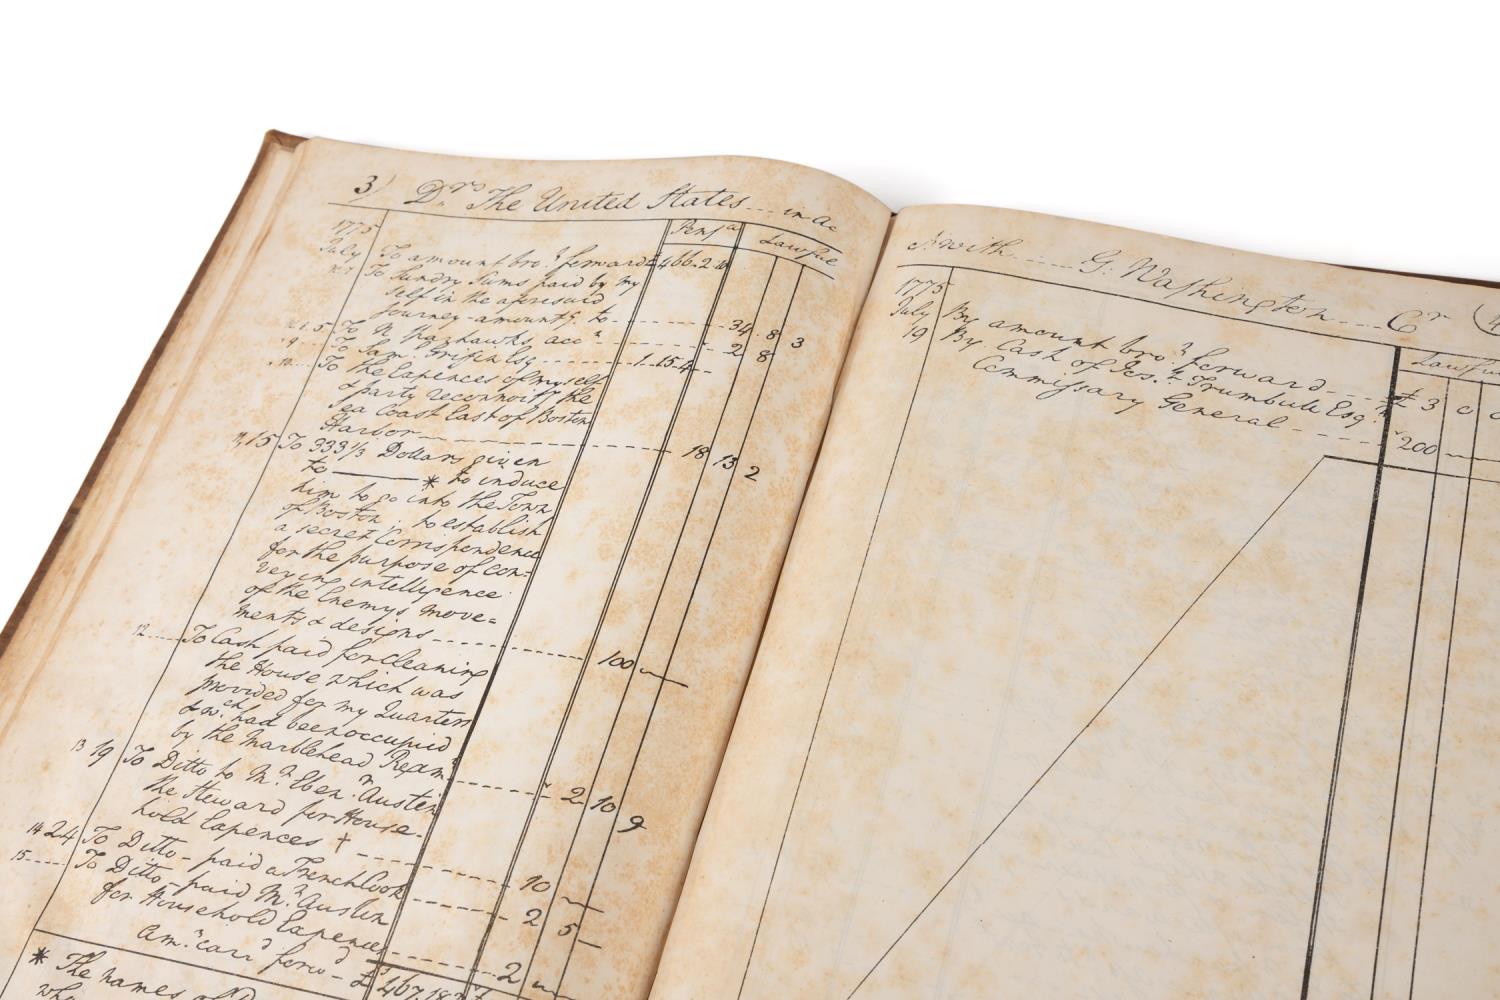 3) Drs. The United States ... in ac
Pensa Lawful
1775
July To amount bro.t forward £ 466.2.
No. 7 To Sundry Sums paid by my
self in the aforesaid
journey - amount.g to 34 8 3
15 To N. acct 2 8
9 To Sam.l Griffin Esq 1.15.4
10 To the Expences of myself
& party reconnoit.g the
Sea Coast East of Boston
Harbor 18 13 2
11, 15 To 333 1/3 Dollars given
to ——— * to induce
him to go into the Town
of Boston; to establish
a secret Correspondence
for the purpose of con-
veying intelligence
of the Enemys move=
ments & designs 100
12 To Cash paid for cleaning
the House which was
provided for my Quarters
& wch had been occupied
by the Marblehead Regimt 2 10 9
13 19 To Ditto to Mr. Eben.r Austin
the Steward for House-
hold Expences † 10
14 24 To Ditto - paid a French Cook 2 5
15 To Ditto - paid Mr. Austin
for Household Expences 2
Am.t car.d forw.d £ 467.18
* The names of
who
with G. Washington Cr. (4
Lawful
1775
July By amount bro.t forward £ 3
19 By Cash of Jos.h Trumbull Esq.r
Commissary General 200